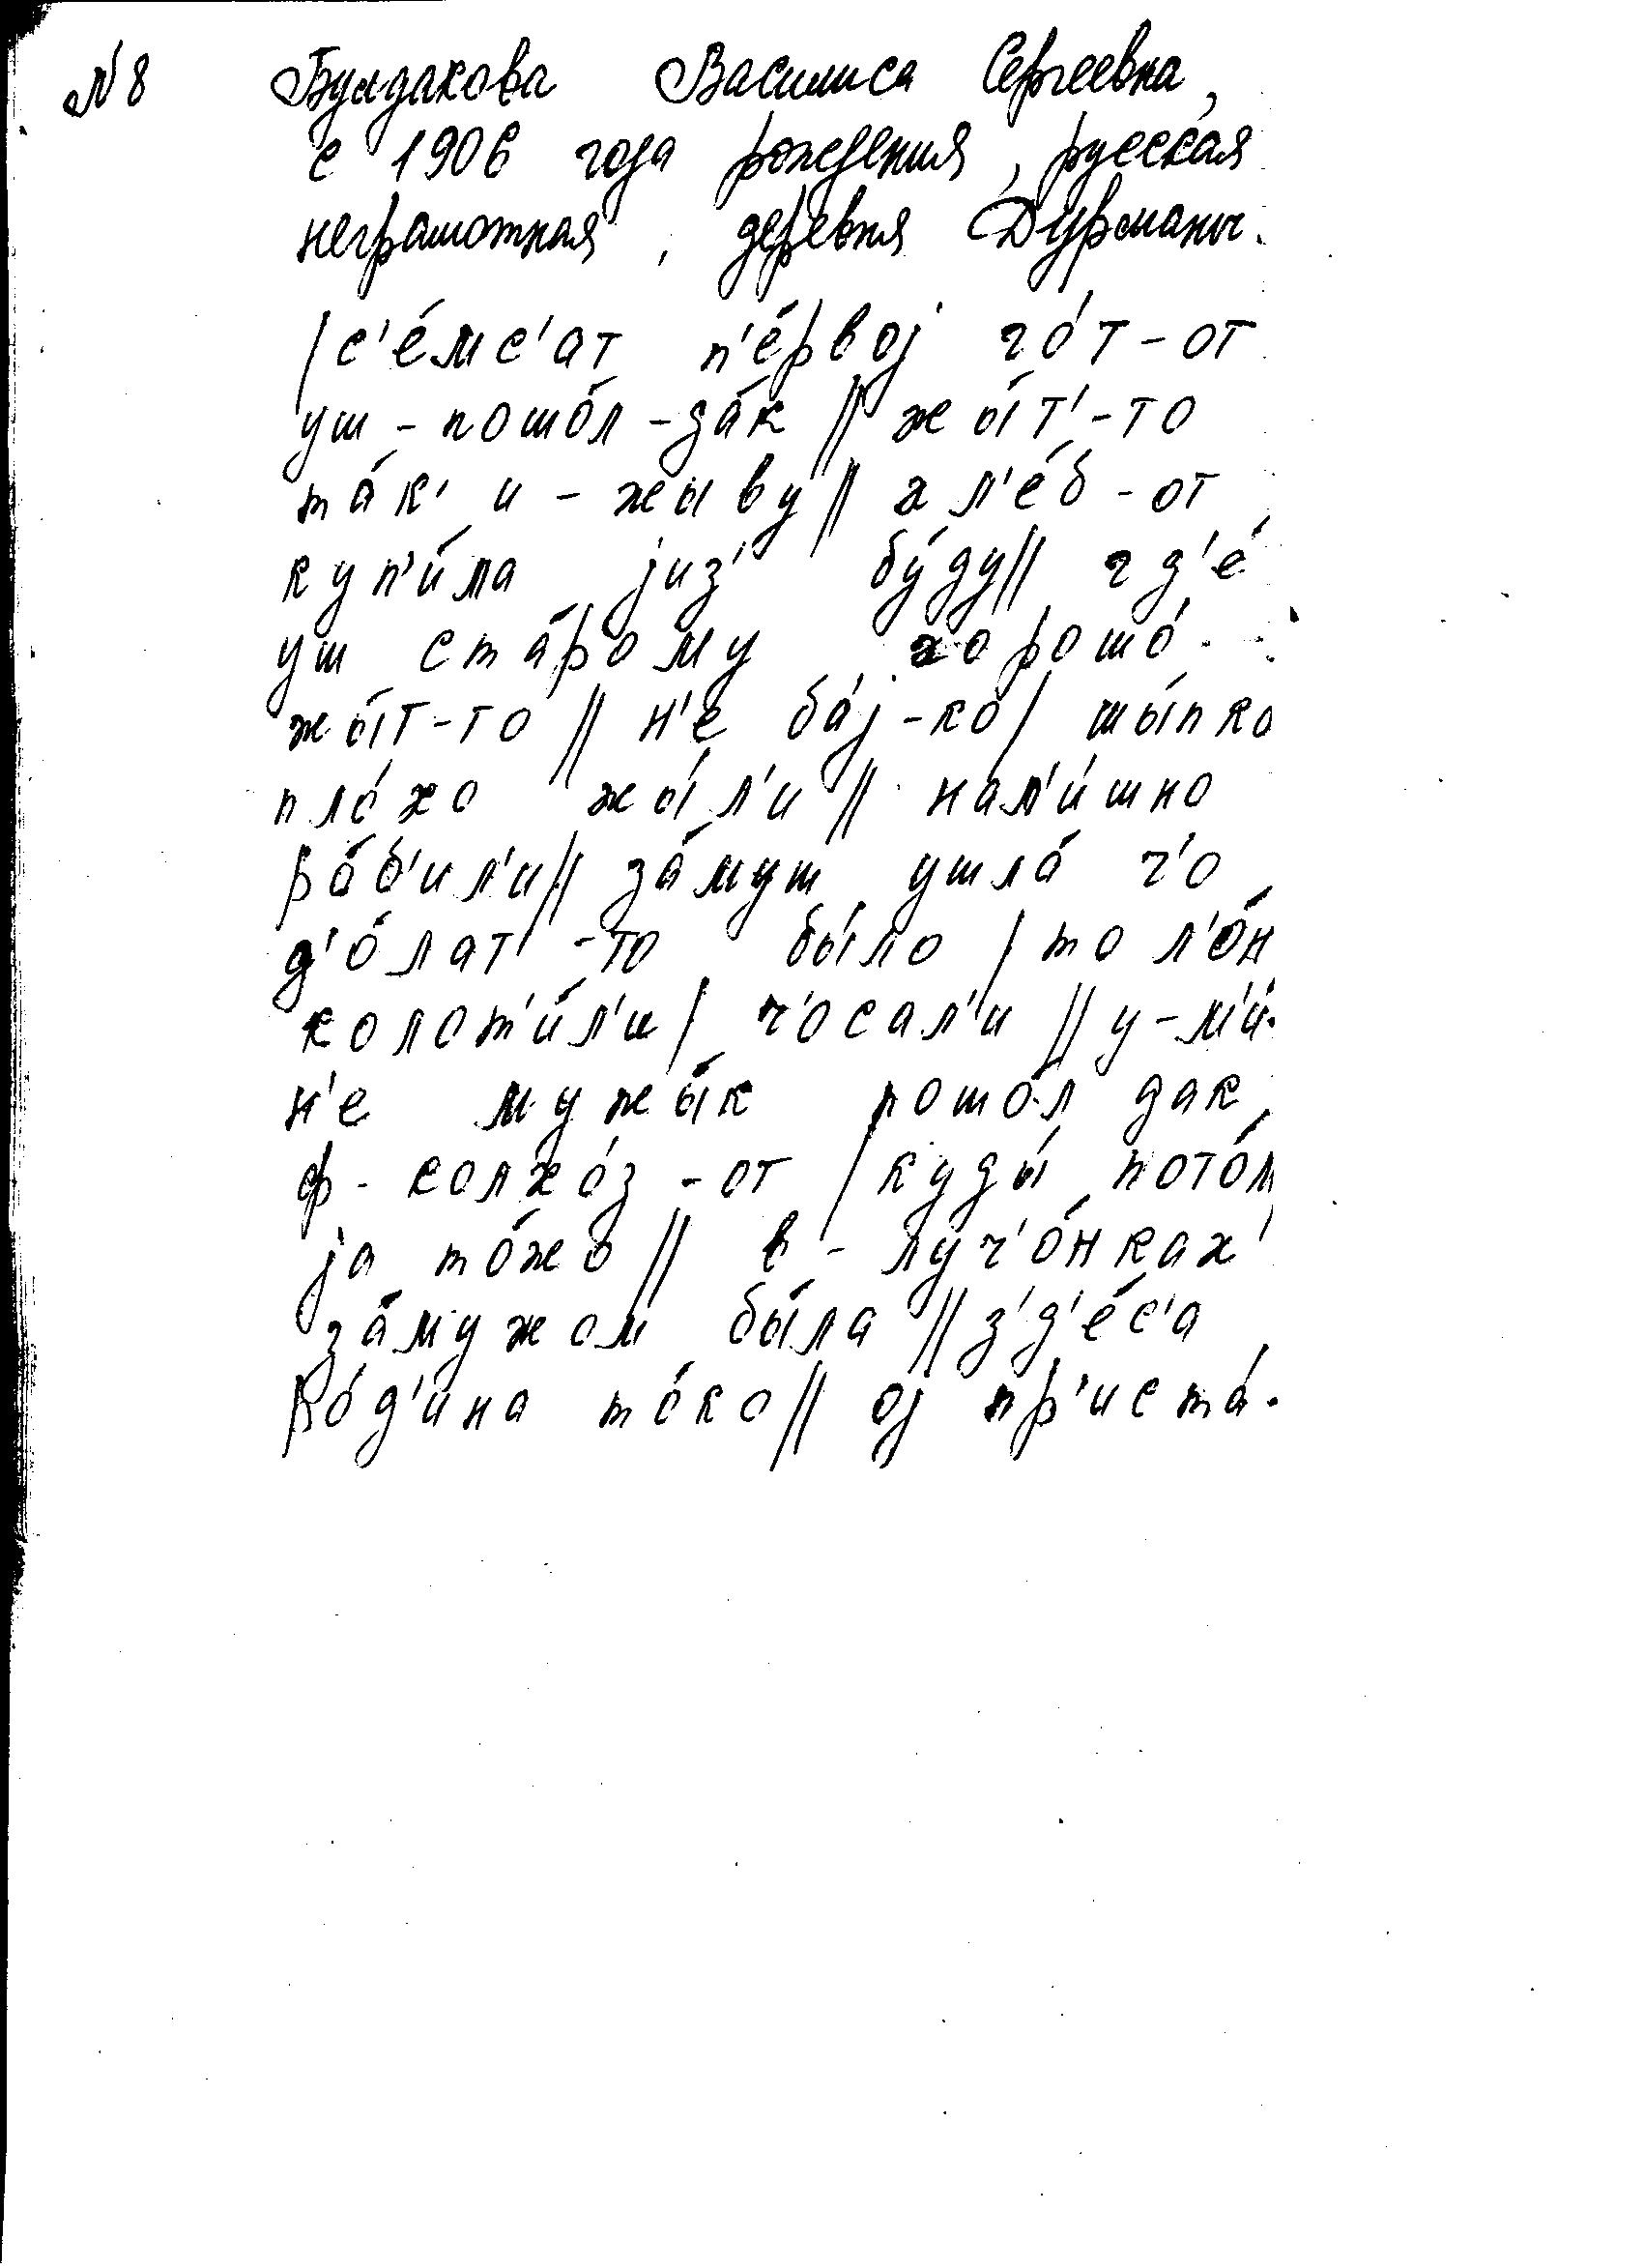 № 8 Булдакова Василиса Сергеевна,
с 1906 года рождения, русская
неграмотная, деревня Дурманы.
/с'е́мс'ат п'е́рвој го́т-от
уш-пошо́л-да́к // жы́т'-то
та́к' и-жыву // хл'е́б-от
куп'и́ла јиз' бу́ду// гд'е́
уш ста́рому хорошо́
жы́т-то // н'е ба́ј-ко/ шы́пко
пло́хо жы́л'и // нал'и́шно
ро́б'ил'и// за́муш ушла́ ч'о
д'о́лат'-то бы́ло / то л'о́н
колот'и́л'и/ ч'осал'и // у-м'и-
н'е мужы́к пошо́л дак
ф-колхо́з-от / куды́ пото́м
ја то́жо // в-луч'о́нках
за́мужом бы́ла // з'д'е́с'а
ро́д'ина то́ко// ој пр'иста́-